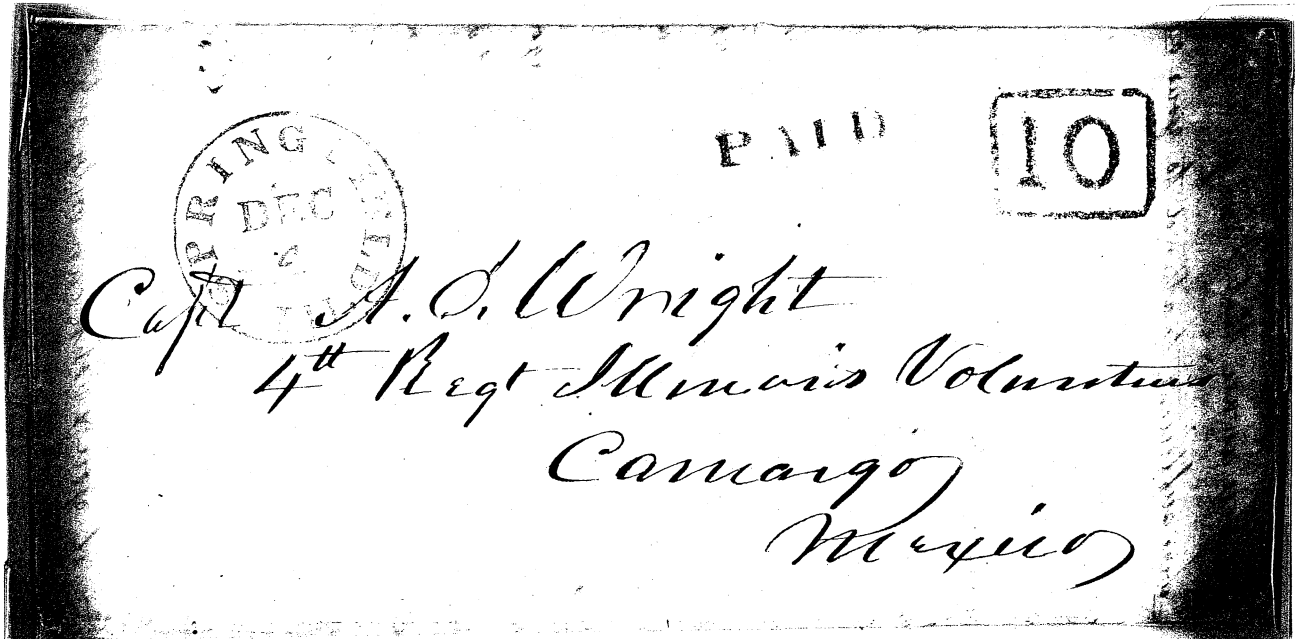 SPRINGFIELD
DEC
PAID
10
Capt A. S. Wright
4th Regt Illinois Volunteers
Camargo
Mexico